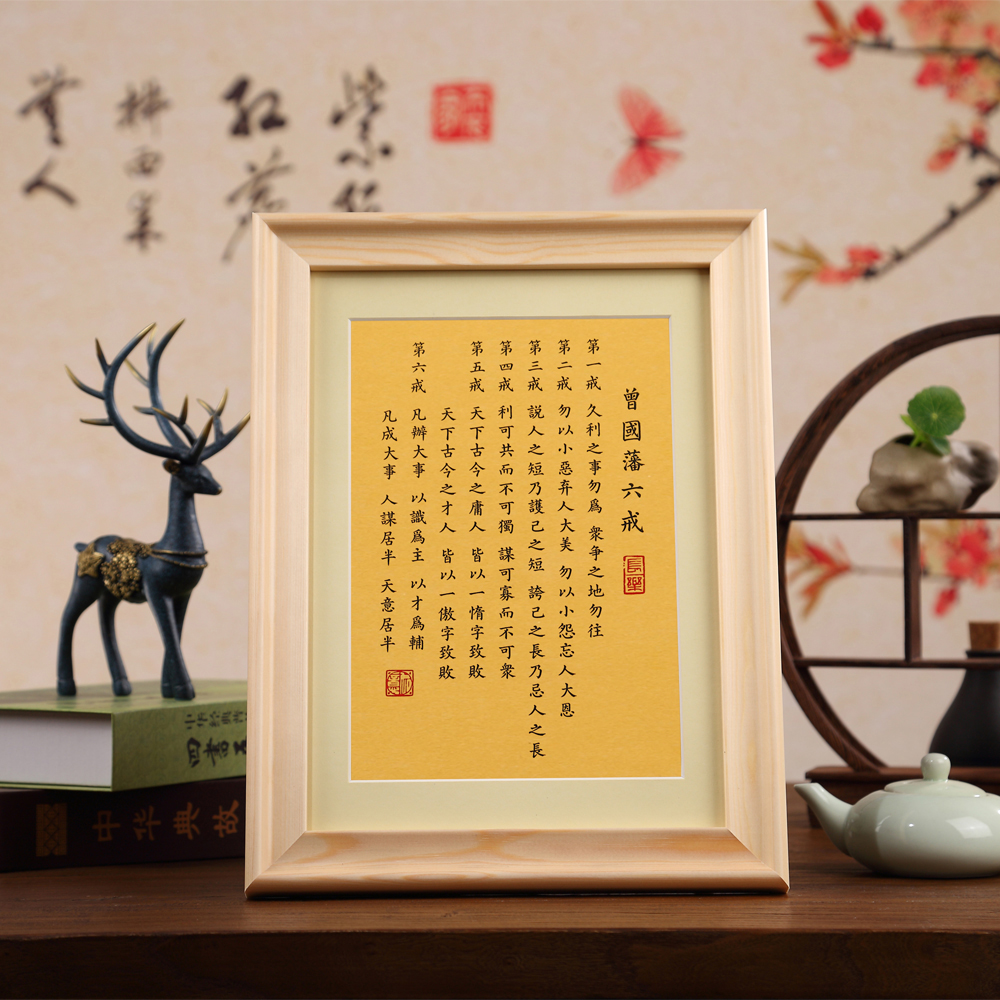 曾國藩六戒
長樂
第一戒 久利之事勿爲 衆争之地勿往
第二戒 勿以小惡弃人大美 勿以小怨忘人大恩
第三戒 説人之短乃護己之短 誇己之長乃忌人之長
第四戒 利可共而不可獨 謀可寡而不可衆
第五戒 天下古今之庸人 皆以一惰字致敗
天下古今之才人 皆以一傲字致敗
第六戒 凡辦大事 以識爲主 以才爲輔
凡成大事 人謀居半 天意居半
紫
紅
人
四書
中华典故